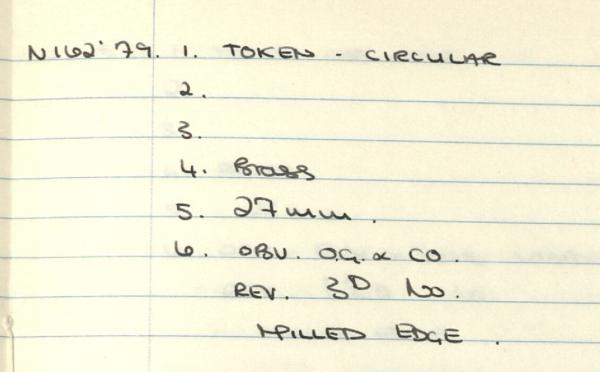 N162'79. 1. TOKEN - CIRCULAR
2.
3.
4. Brass
5. 27mm.
6. OBV. O.G. & CO.
REV. 3D No.
MILLED EDGE.